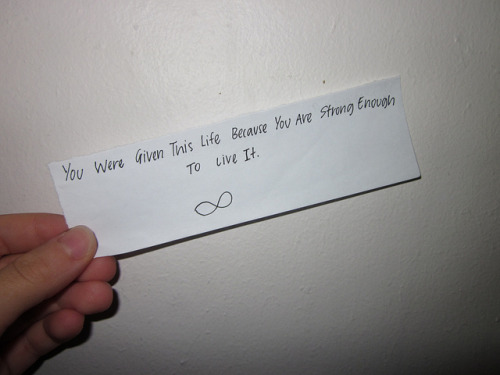 You Were Given This Life Because You Are Strong Enough
To Live It.